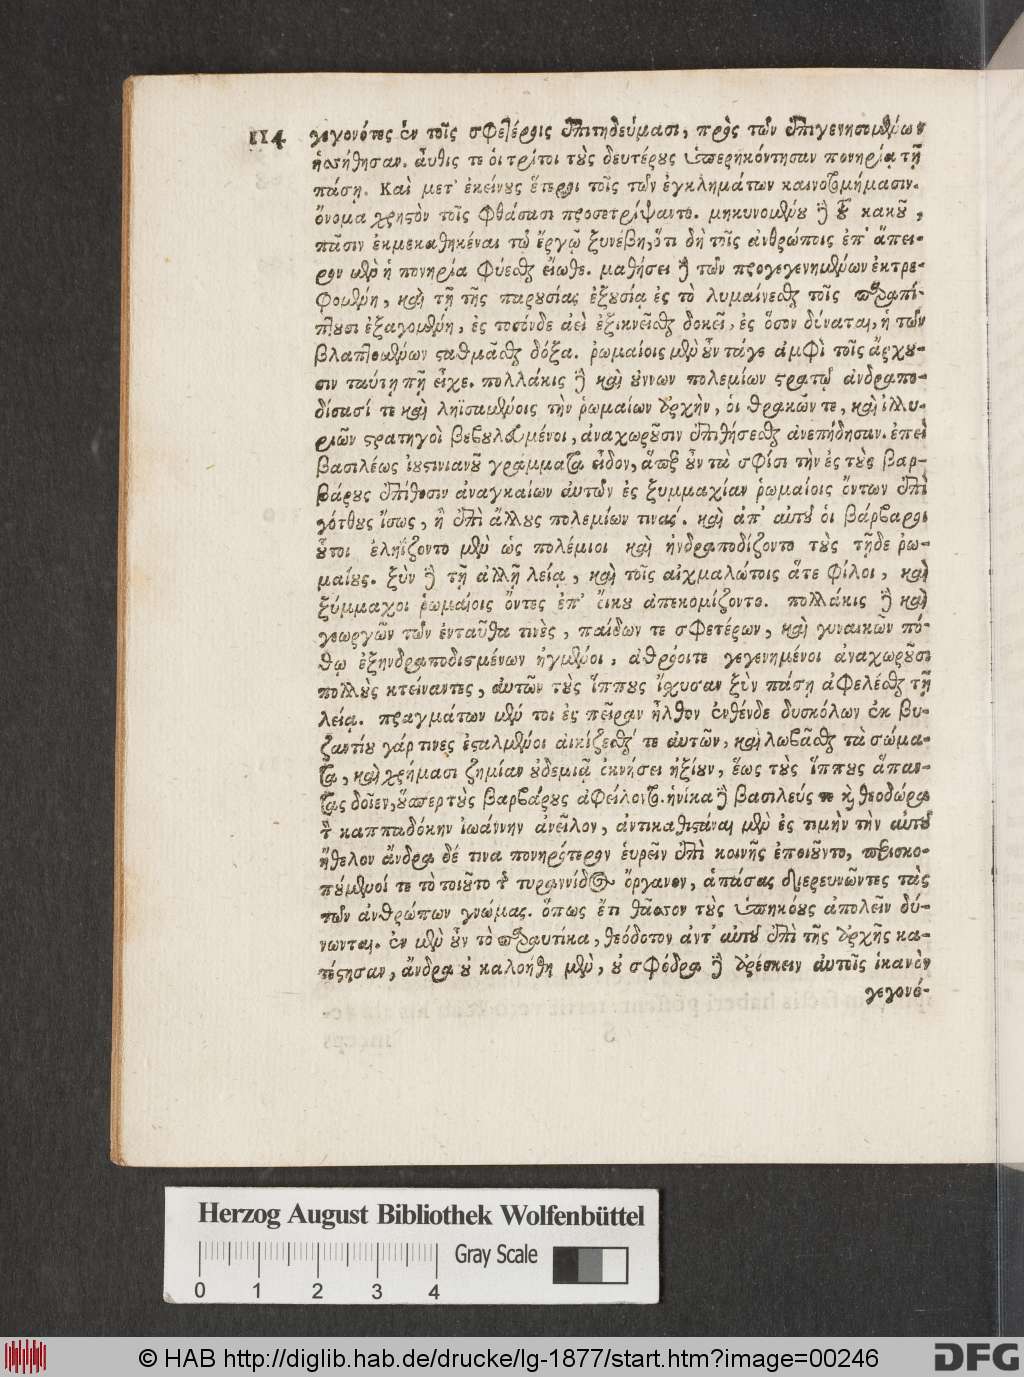 114 γεγονότες ἐν τοῖς σφετέροις ἐπιτηδεύμασι, πρὸς τῶν ἐπιγενησομένων
ἡσσήθησαν. αὖθις τε οἱ τρίτοι τοὺς δευτέρους ὑπερηκόντησαν πονηρίᾳ τῇ
πάσῃ. Καὶ μετ' ἐκείνους ἕτεροι τοῖς τῶν ἐγκλημάτων καινοτομήμασιν.
ὄνομα χρηστὸν τοῖς φθάσασι προσετρίψαντο. μηκυνομένου δὲ τοῦ κακοῦ,
πᾶσιν ἐκμεμαθηκέναι τῷ ἔργῳ ξυνέβη, ὅτι δὴ τοῖς ἀνθρώποις ἐπ' ἄπει-
ρον μὲν ἡ πονηρία φύεσθαι εἴωθε. μαθήσει δὲ τῶν προγεγενημένων ἐκτρε-
φομένη, καὶ τῇ τῆς παρουσίας ἐξουσίᾳ ἐς τὸ λυμαίνεσθαι τοῖς παραπί-
πτουσι ἐξαγομένη, ἐς τοσόνδε ἀεὶ ἐξικνεῖσθαι δοκεῖ, ἐς ὅσον δύναται, ἡ τῶν
βλαπτομένων σταθμᾶσθαι δόξα. ῥωμαίοις μὲν οὖν τάγε ἀμφὶ τοῖς ἄρχου-
σιν ταύτῃ πῇ εἶχε. πολλάκις δὲ καὶ οὔννων πολεμίων στρατῷ ἀνδραπο-
δίσασί τε καὶ ληϊσαμένοις τὴν ῥωμαίων ἀρχὴν, οἱ θρακῶν τε, καὶ ἰλλυ-
ριῶν στρατηγοὶ βεβουλευμένοι, ἀναχωροῦσιν ἐπιθήσεσθαι ἀνεπήδησαν. ἐπεὶ
βασιλέως ἰουστινιανοῦ γράμματα εἶδον, ἅπερ οὖν τὰ σφίσι τὴν ἐς τοὺς βαρ-
βάρους ἐπίθεσιν ἀναγκαίων αὐτῶν ἐς ξυμμαχίαν ῥωμαίοις ὄντων ἐπὶ
γότθους ἴσως, ἢ ἐπὶ ἄλλους πολεμίων τινας. καὶ ἀπ' αὐτοῦ οἱ βάρβαροι
οὗτοι ἐληΐζοντο μὲν ὡς πολέμιοι καὶ ἠνδραποδίζοντο τοὺς τῇδε ῥω-
μαίους. ξὺν δὲ τῇ ἀλλῇ λείᾳ, καὶ τοῖς αἰχμαλώτοις ἅτε φίλοι, καὶ
ξύμμαχοι ῥωμαίοις ὄντες ἐπ' οἴκου ἀπεκομίζοντο. πολλάκις δὲ καὶ
γεωργῶν τῶν ἐνταῦθα τινὲς, παίδων τε σφετέρων, καὶ γυναικῶν πό-
θῳ ἐξηνδραποδισμένων ἠγμένοι, ἀθρόοιτε γεγενημένοι ἀναχωροῦσι
πολλοὺς κτείναντες, αὐτῶν τοὺς ἵππους ἴσχυσαν ξὺν πάσῃ ἀφελέσθαι τῇ
λείᾳ. πραγμάτων μέν τοι ἐς πεῖραν ἦλθον ἐνθένδε δυσκόλων ἐκ βυ-
ζαντίου γάρ τινες ἐσταλμένοι αἰκίζεσθαί τε αὐτῶν, καὶ λωβᾶσθαι τὰ σώμα-
τα, καὶ χρήμασι ζημίαν οὐδεμιᾷ ὀκνήσει ἠξίουν, ἕως τοὺς ἵππους ἅπαν-
τας δοῖεν, οὕσπερ τοὺς βαρβάρους ἀφείλοντο. ἡνίκα δὲ βασιλεύς τε καὶ θεοδώρα
τὸν καππαδόκην ἰωάννην ἀνεῖλον, ἀντικαθιστάναι μὲν ἐς τιμὴν τὴν αὐτοῦ
ἤθελον ἄνδρα δέ τινα πονηρότερον εὑρεῖν ἐπὶ κοινῆς ἐποιοῦντο, περισκο-
πούμενοί τε τὸ τοιοῦτο τῆς τυραννίδος ὄργανον, ἁπάσας διερευνῶντες τὰς
τῶν ἀνθρώπων γνώμας. ὅπως ἔτι θᾶσσον τοὺς ὑπηκόους ἀπολεῖν δύ-
νωνται. ἐν μὲν οὖν τὸ παραυτίκα, θεόδοτον ἀντ' αὐτοῦ ἐπὶ τῆς ἀρχῆς κα-
τέστησαν, ἄνδρα οὐ καλοήθη μὲν, οὐ σφόδρα δὲ ἀρέσκειν αὐτοῖς ἱκανὸν
γεγονό-
Herzog August Bibliothek Wolfenbüttel
Gray Scale
0 1 2 3 4
© HAB http://diglib.hab.de/drucke/lg-1877/start.htm?image=00246
DFG